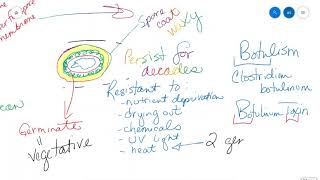 Spore
coat
waxy
membrane
Persist for
decades
Resistant to:
- nutrient deprivation
- drying out
- chemicals
- UV light
- heat
2 ger
Germinate
Vegetative
can
Botulism
Clostridium
botulinum
Botulinum Toxin